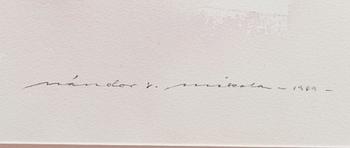 nándor v. mikola - 1989 -